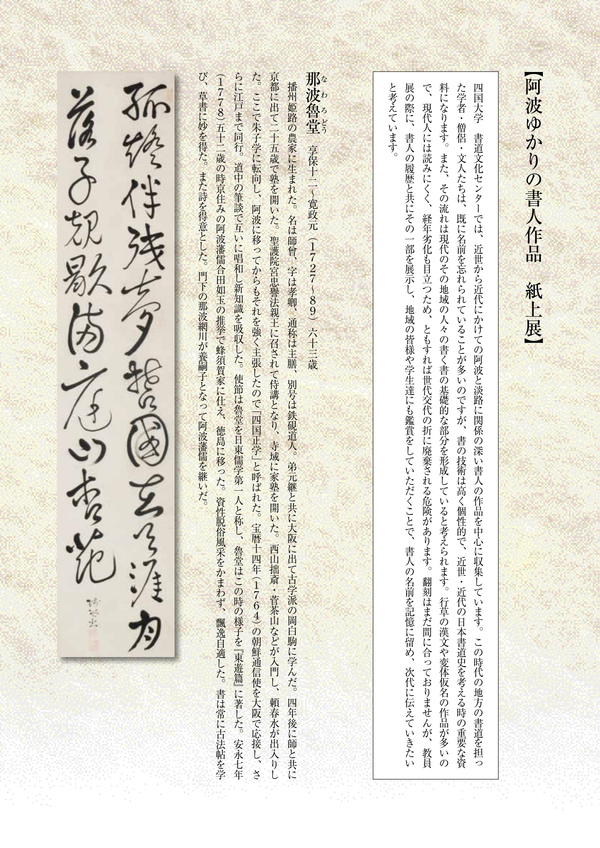 【阿波ゆかりの書人作品　紙上展】
四国大学　書道文化センターでは、近世から近代にかけての阿波と淡路に関係の深い書人の作品を中心に収集しています。この時代の地方の書道を担っ
た学者・僧侶・文人たちは、既に名前を忘れられていることが多いのですが、書の技術は高く個性的で、近世・近代の日本書道史を考える時の重要な資
料になります。また、その流れは現代のその地域の人々の書く書の基礎的な部分を形成していると考えられます。行草の漢文や変体仮名の作品が多いの
で、現代人には読みにくく、経年劣化も目立つため、ともすれば世代交代の折に廃棄される危険があります。翻刻はまだ間に合っておりませんが、教員
展の際に、書人の履歴と共にその一部を展示し、地域の皆様や学生達にも鑑賞をしていただくことで、書人の名前を記憶に留め、次代に伝えていきたい
と考えています。
那波魯堂　享保十二～寛政元（1727～89）六十三歳
なわろどう
播州姫路の農家に生まれた。名は師曾、字は孝卿、通称は主膳、別号は鉄硯道人。弟元継と共に大阪に出て古学派の岡白駒に学んだ。四年後に師と共に
京都に出て二十五歳で塾を開いた。聖護院宮忠譽法親王に召されて侍講となり、寺域に家塾を開いた。西山拙斎・菅茶山などが入門し、頼春水が出入りし
た。ここで朱子学に転向し、阿波に移ってからもそれを強く主張したので「四国正学」と呼ばれた。宝暦十四年（1764）の朝鮮通信使を大阪で応接し、さ
らに江戸まで同行。道中の筆談で互いに唱和し新知識を吸収した。使節は魯堂を日東儒学第一人と称し、魯堂はこの時の様子を『東遊篇』に著した。安永七年
（1778）五十二歳の時京住みの阿波藩儒合田如玉の推挙で蜂須賀家に仕え、徳島に移った。資性脱俗風采をかまわず、飄逸自適した。書は常に古法帖を学
び、草書に妙を得た。また詩を得意とした。門下の那波網川が養嗣子となって阿波藩儒を継いだ。